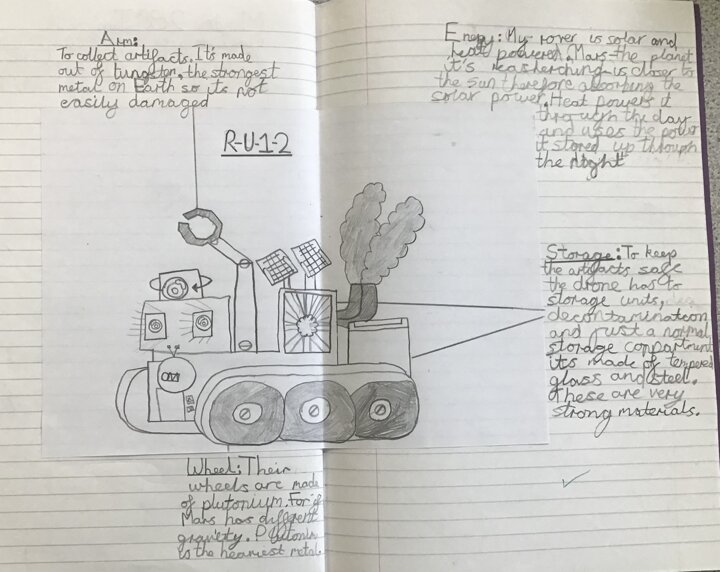 Arm:
To collect artifacts. It's made
out of tungsten, the strongest
metal on Earth so its not
easily damaged
Energy: My rover is solar and
heat powered. Mars the planet
it's reaserching is closer to
the sun therefore absorbing the
solar power. Heat powers it
through the day
and uses the power
it stored up through
the night
R-U-1-2
Storage: To keep
the artifacts safe
the drone has to
storage units,
decontamination
and just a normal
storage compartment
its made of tempered
glass and steel.
These are very
strong materials.
Wheel: Their
wheels are made
of plutonium. For
Mars has different
gravity. Plutonium
is the heaviest metal